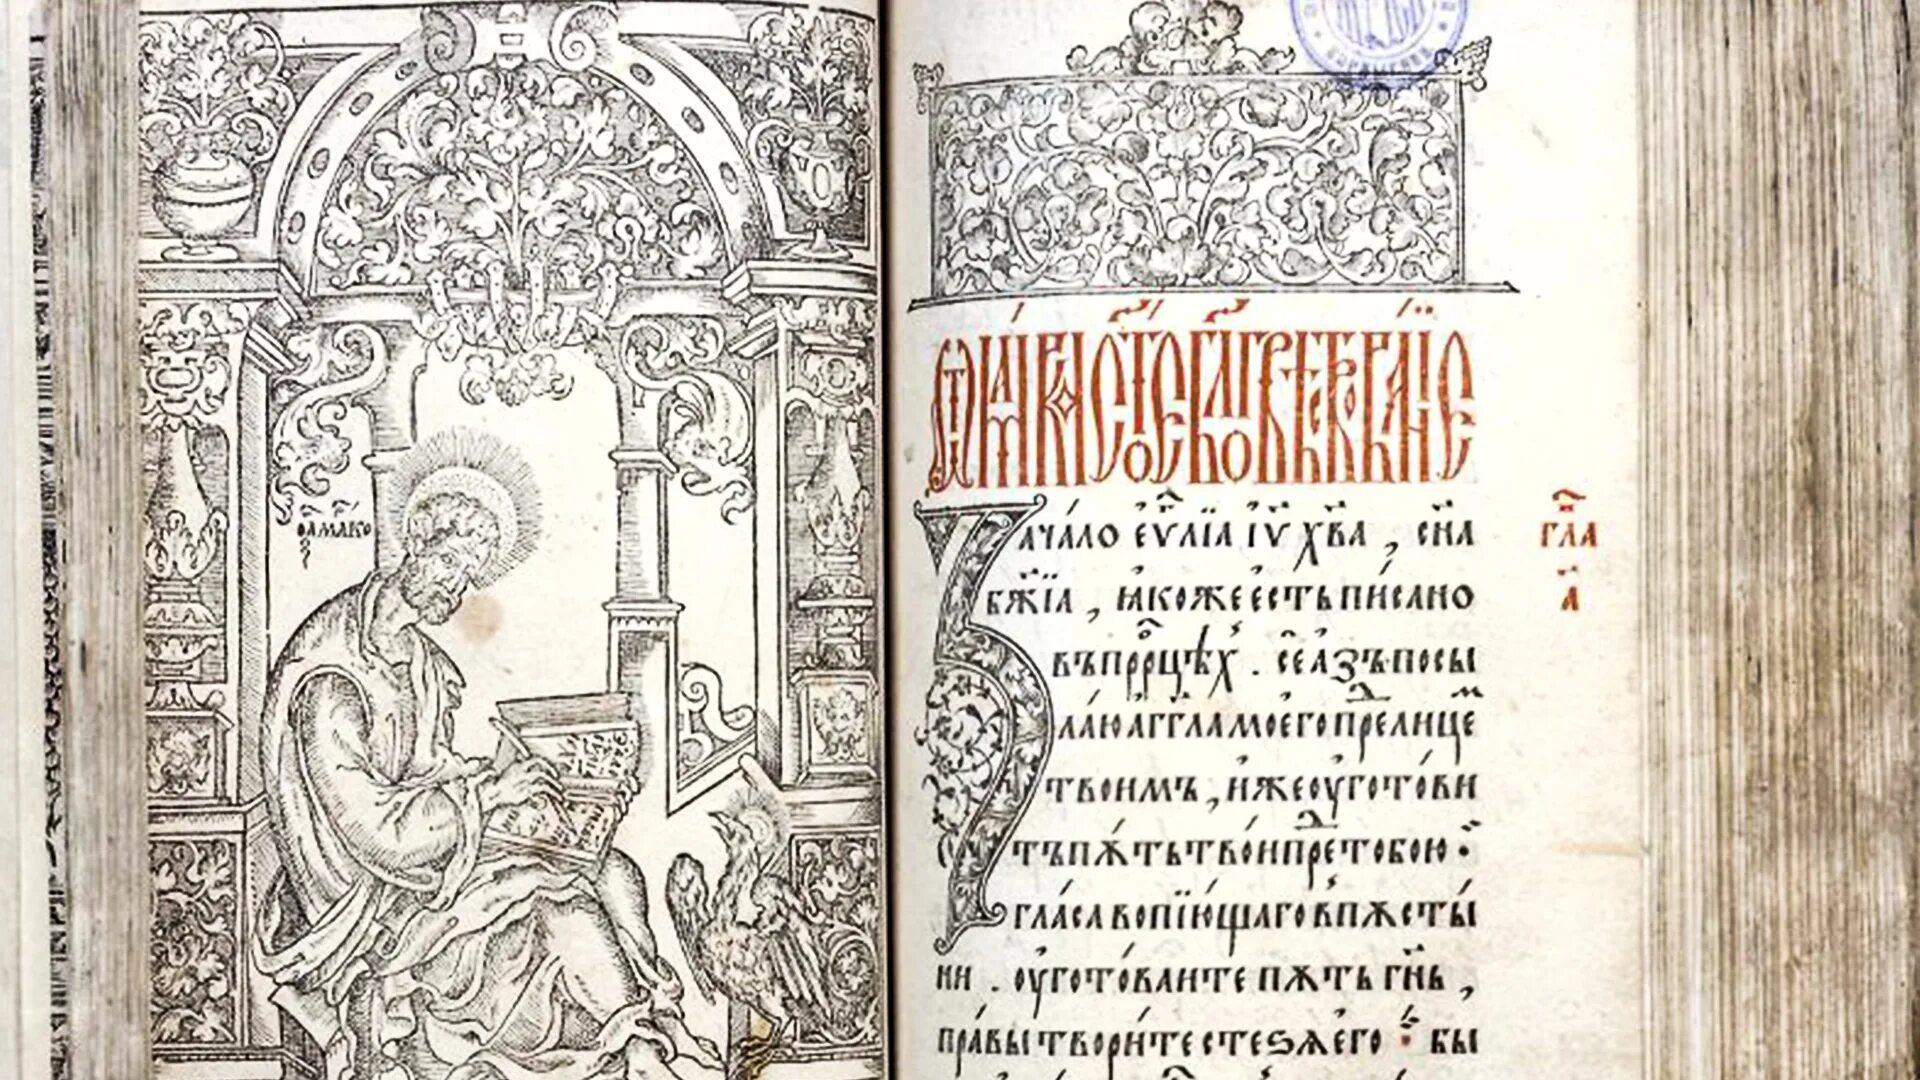 ѾМАРКАСТОЕБЛГОВѢСТВОВАНЇЕ
Зачало еѵⷢ҇лїа іѵ҃ хв҃а , сн҃а
бж҃їа , ꙗкожеестьписано
въпррⷪ҇цѣⷯ . сеазъпосы
лаюагг҃ламоегопреⷣлицеⷨ
твоимъ , ижеоуготови
тъпѫтьтвоипреⷣтобою :
гласавопїющаговпѫсты
ни . оуготоваитепѫтьгн҃ь ,
правытворитестеѕѧего : бы
гл҃а
а҃